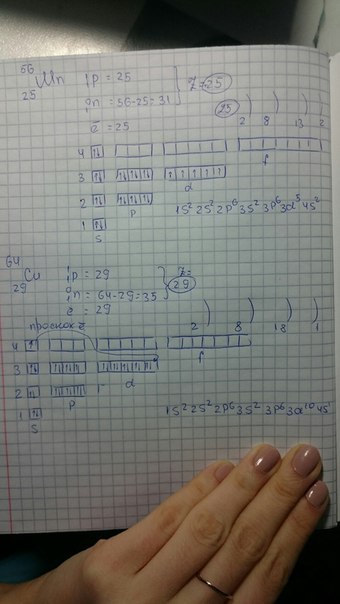 56
25 Mn
1p = 25
1
0n = 56-25=31
ē = 25
Z=25
25 ) ) ) )
2 8 13 2
4
f
3
d
2
p
1
s
1s² 2s² 2p⁶ 3s² 3p⁶ 3d⁵ 4s²
64
29 Cu
1p = 29
1
0n = 64-29=35
ē = 29
Z=
29
) ) ) )
2 8 18 1
проскок ē
4
f
3
d
2
p
1
s
1s² 2s² 2p⁶ 3s² 3p⁶ 3d¹⁰ 4s¹